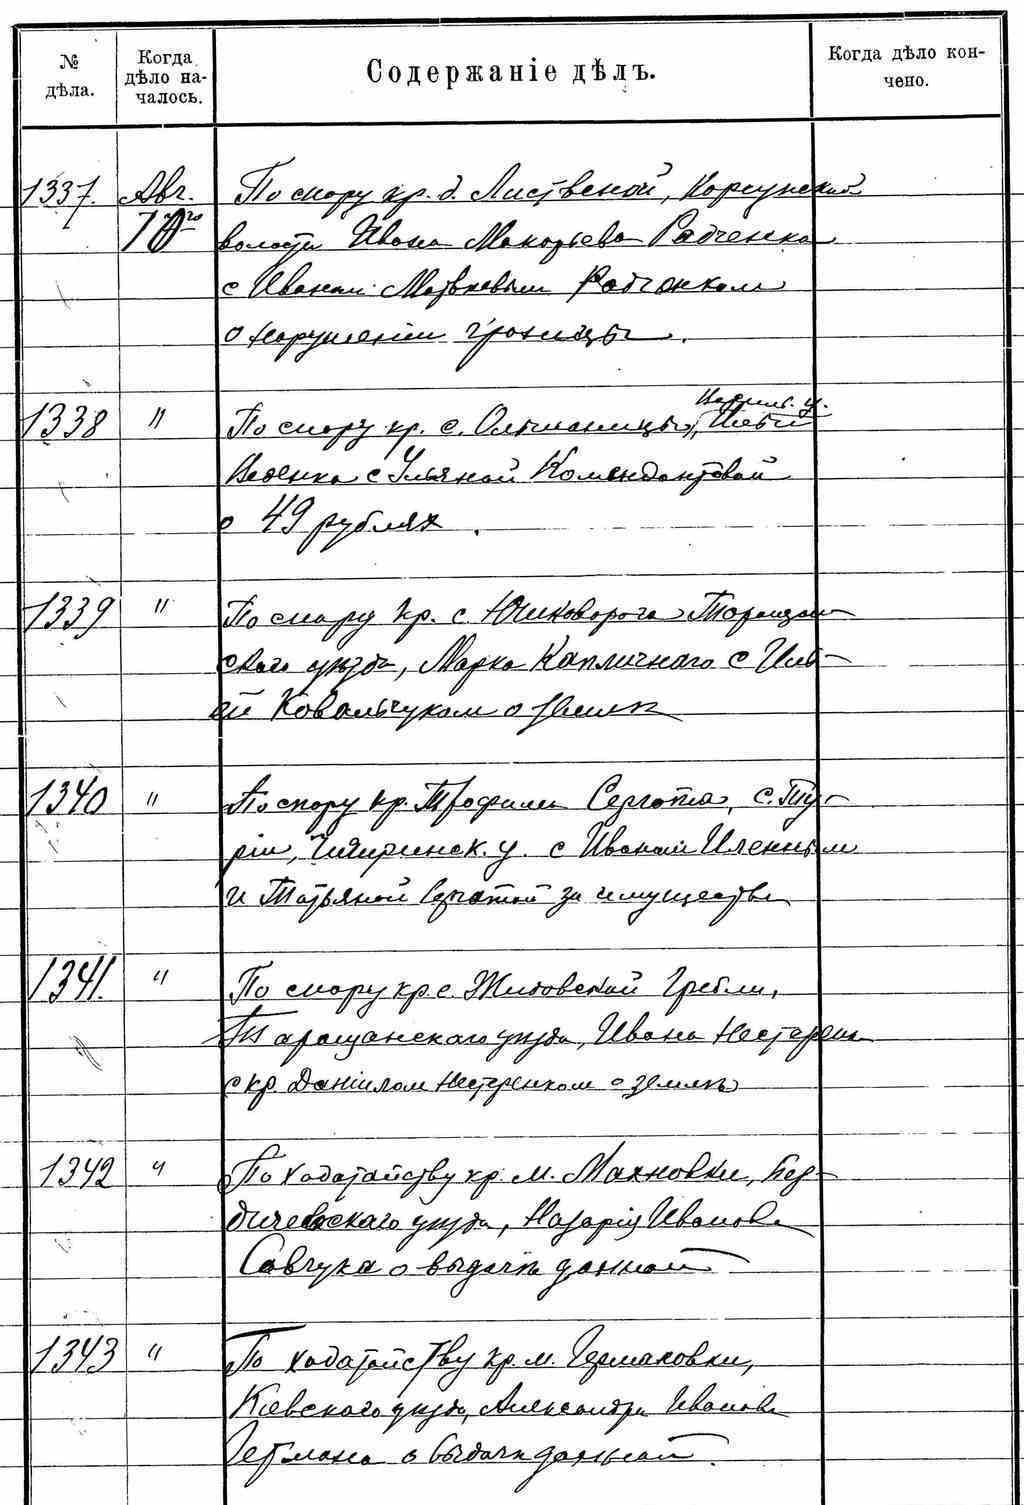 № дѣла.
Когда дѣло началось.
Содержаніе дѣлъ.
Когда дѣло кончено.
1337. Авг. По спору кр. д. Лиственой, Корсунской
10го волости Ивана Макарьева Радченка
с Иваном Матвѣевым Радченком
о нарушеніи границы.
1338 " По спору кр. с. Ольшаницы, Васильк. у. Ильи
с Ульяной Комендантовой
о 49 рублях.
1339 " По спору кр. с. Юшков рога Таращан-
скаго уѣзда, Марка Капличнаго с Иль-
ей Ковальчуком о землѣ
1340 " По спору кр. Трофима Сергота, с. Ту-
ріи, Чигиринск. у. с Иваном
и Татьяной за имущество
1341. " По спору кр. с. Жидовской Гребли,
Таращанскаго уѣзда, Ивана Нестеренка
с кр. Даніилом Нестеренком о землѣ
1342 " По ходатайству кр. м. Махновки, Бер-
дичевскаго уѣзда, Назарія Иванова
Савчука о выдачѣ данной
1343 " По ходатайству кр. м. Германовки,
Кіевскаго уѣзда, Александра Иванова
Гетмана о выдачѣ данной.